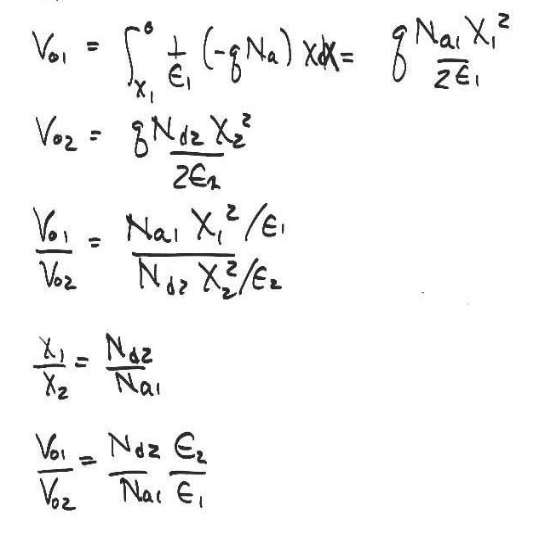 V₀₁ = ∫_{X₁}^{0} 1/ϵ₁ (-qNa) x dx = q Na₁ X₁² / 2ϵ₁
V₀₂ = q Nd₂ X₂² / 2ϵ₂
V₀₁ / V₀₂ = Na₁ X₁² / ϵ₁ / Nd₂ X₂² / ϵ₂
X₁ / X₂ = Nd₂ / Na₁
V₀₁ / V₀₂ = Nd₂ / Na₁ ϵ₂ / ϵ₁